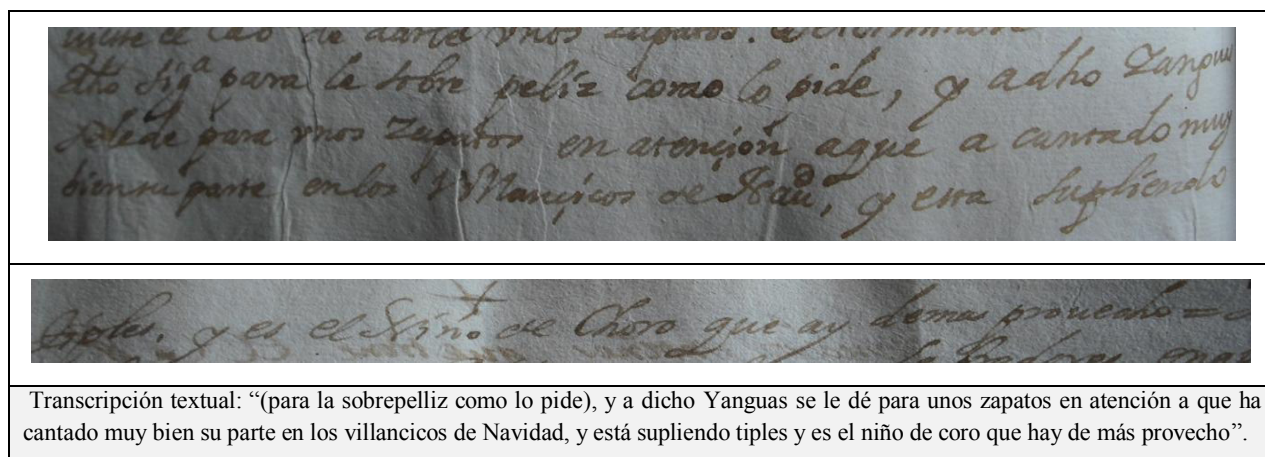 dho Sig.ª para la sobre peliz como lo pide, y adho Yangu
se le de para vnos Zapatos en atençion aque a cantado muy
bien su parte en los Villançicos de Nauᵈ, y esta Supliendo
tiples. y es el Niño de Choro que ay demas prouecho =
Transcripción textual: “(para la sobrepelliz como lo pide), y a dicho Yanguas se le dé para unos zapatos en atención a que ha
cantado muy bien su parte en los villancicos de Navidad, y está supliendo tiples y es el niño de coro que hay de más provecho”.